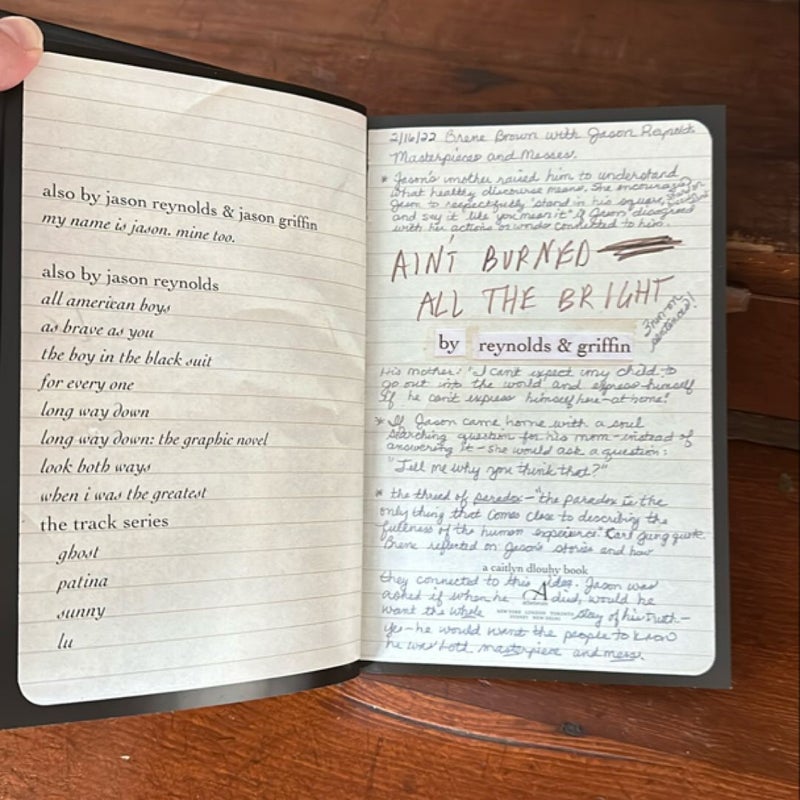 also by jason reynolds & jason griffin
my name is jason. mine too.
also by jason reynolds
all american boys
as brave as you
the boy in the black suit
for every one
long way down
long way down: the graphic novel
look both ways
when i was the greatest
the track series
ghost
patina
sunny
lu
2/16/22 Brene Brown with Jason Reynolds
Masterpieces and Messes.
* Jason's mother raised him to understand
what healthy discourse means. She encouraged
Jason to respectfully "stand in his square,
and say it like you mean it" if Jason disagreed
with her actions or words connected to him.
AIN'T BURNED
ALL THE BRIGHT
3 run-on
sentences!
by reynolds & griffin
His mother: "I can't expect my child to
go out into the world and express himself
if he can't express himself here-at home!
* If Jason came home with a soul
searching question for his mom-instead of
answering it-she would ask a question:
"Tell me why you think that?"
* the thread of paradox-"the paradox is the
only thing that comes close to describing the
fullness of the human experience" Carl Jung quote.
Brene reflected on Jason's stories and how
a caitlyn dlouhy book
they connected to this idea. Jason was
asked if when he died, would he
A
ATHENEUM
want the whole story of his truth-
NEW YORK LONDON TORONTO
SYDNEY NEW DELHI
yes-he would want the people to know
he was both masterpiece and mess.